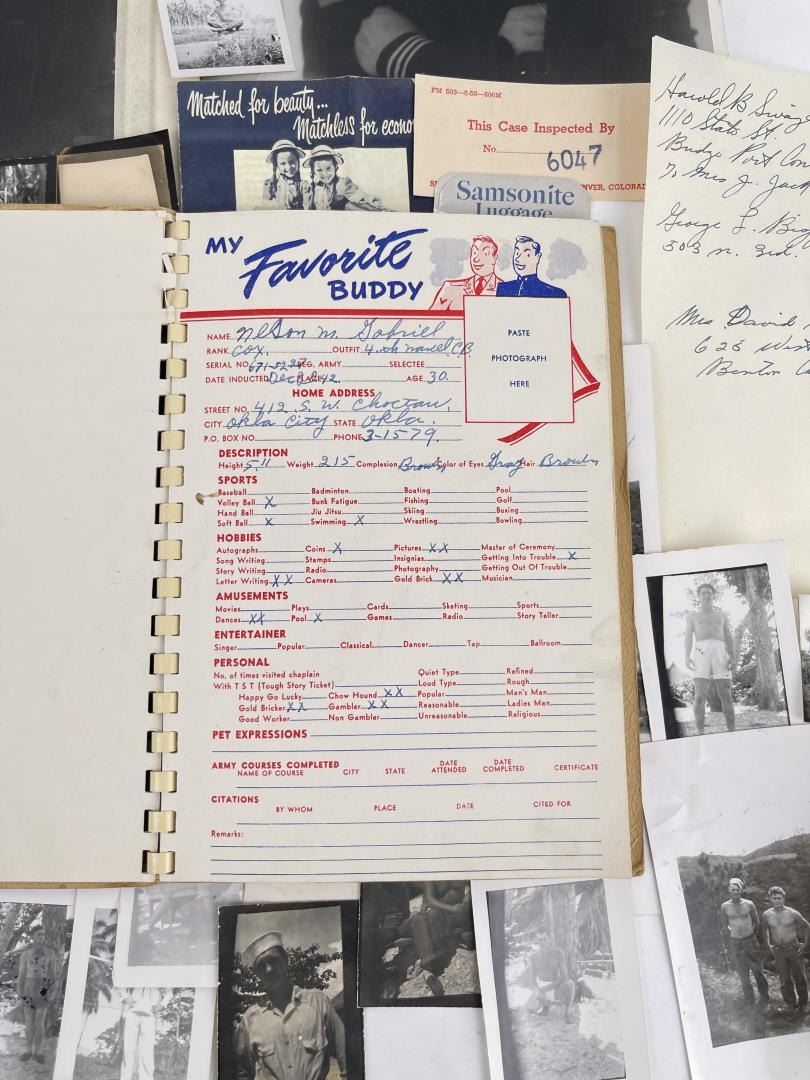 Matched for beauty...
Matchless for econo
FM 503—5-50—600M
This Case Inspected By
No. 6047
NVER, COLORADO
Samsonite
Luggage
Harold B Swaze
1110 State St.
Bridge Port Con
% Mrs J. Jac
George L.
503 N. 3rd.
Mrs David
625 West
Benton
MY Favorite BUDDY
PASTE
PHOTOGRAPH
HERE
NAME Nelson M. Gabriell
RANK Cox. OUTFIT 4th Naval C.B.
SERIAL NO. REG. ARMY SELECTEE
DATE INDUCTED Dec PLACE 42 AGE 30.
HOME ADDRESS
STREET NO. 412 S.W. Choctaw.
CITY Okla City STATE Okla.
P.O. BOX NO. PHONE 3-1579.
DESCRIPTION
Height 5.11 Weight 215 Complexion Brown Color of Eyes Gray Hair Brown
SPORTS
Baseball Badminton Boating Pool
Volley Ball X Bunk Fatigue Fishing Golf
Hand Ball Jiu Jitsu Skiing Boxing
Soft Ball X Swimming X Wrestling Bowling
HOBBIES
Autographs Coins X Pictures XX Master of Ceremony
Song Writing Stamps Insignias Getting Into Trouble X
Story Writing Radio Photography Getting Out Of Trouble
Letter Writing XX Cameras Gold Brick XX Musician
AMUSEMENTS
Movies Plays Cards Skating Sports
Dances XX Pool X Games Radio Story Teller
ENTERTAINER
Singer Popular Classical Dancer Tap Ballroom
PERSONAL
No. of times visited chaplain Quiet Type Refined
With T S T (Tough Story Ticket) Loud Type Rough
Happy Go Lucky Chow Hound XX Popular Man's Man
Gold Bricker XX Gambler XX Reasonable Ladies Man
Good Worker Non Gambler Unreasonable Religious
PET EXPRESSIONS
ARMY COURSES COMPLETED
NAME OF COURSE CITY STATE DATE ATTENDED DATE COMPLETED CERTIFICATE
CITATIONS
BY WHOM PLACE DATE CITED FOR
Remarks: